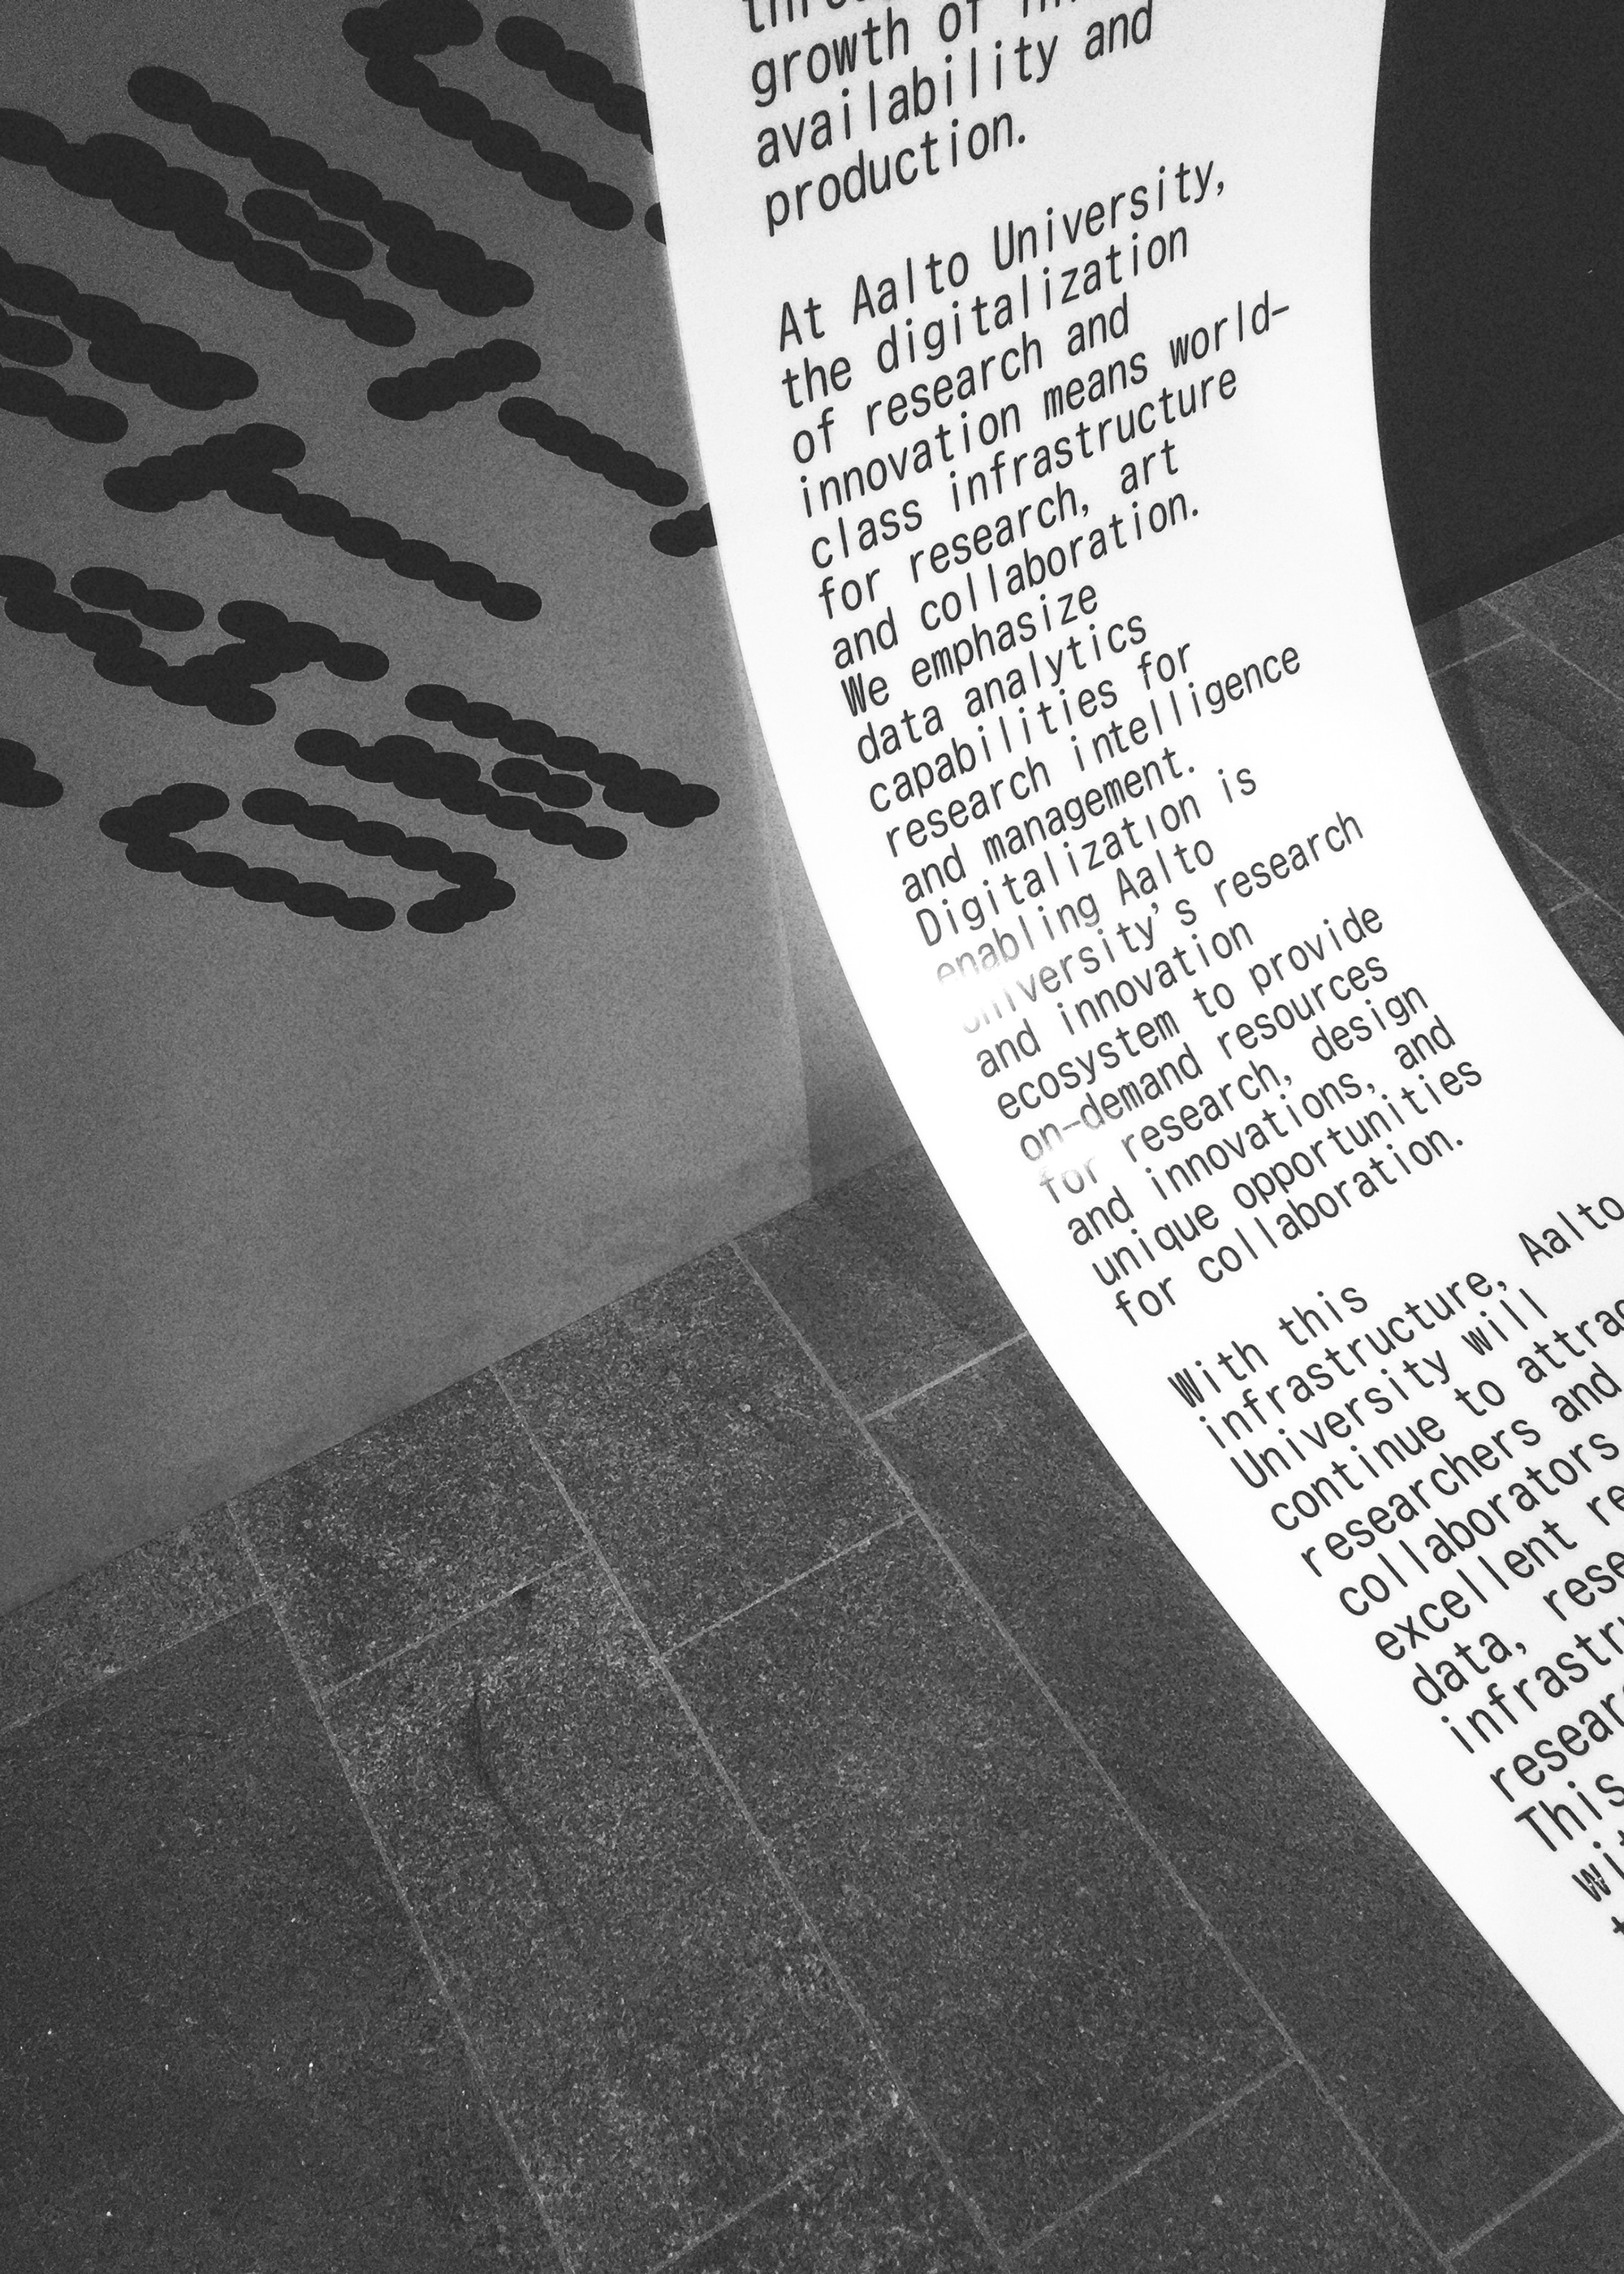 growth of
availability and
production.
At Aalto University,
the digitalization
of research and
innovation means world-
class infrastructure
for research, art
and collaboration.
We emphasize
data analytics
capabilities for
research intelligence
and management.
Digitalization is
enabling Aalto
University's research
and innovation
ecosystem to provide
on-demand resources
for research, design
and innovations, and
unique opportunities
for collaboration.
With this
infrastructure, Aalto
University will
continue to
researchers and
collaborators
excellent
data,
This